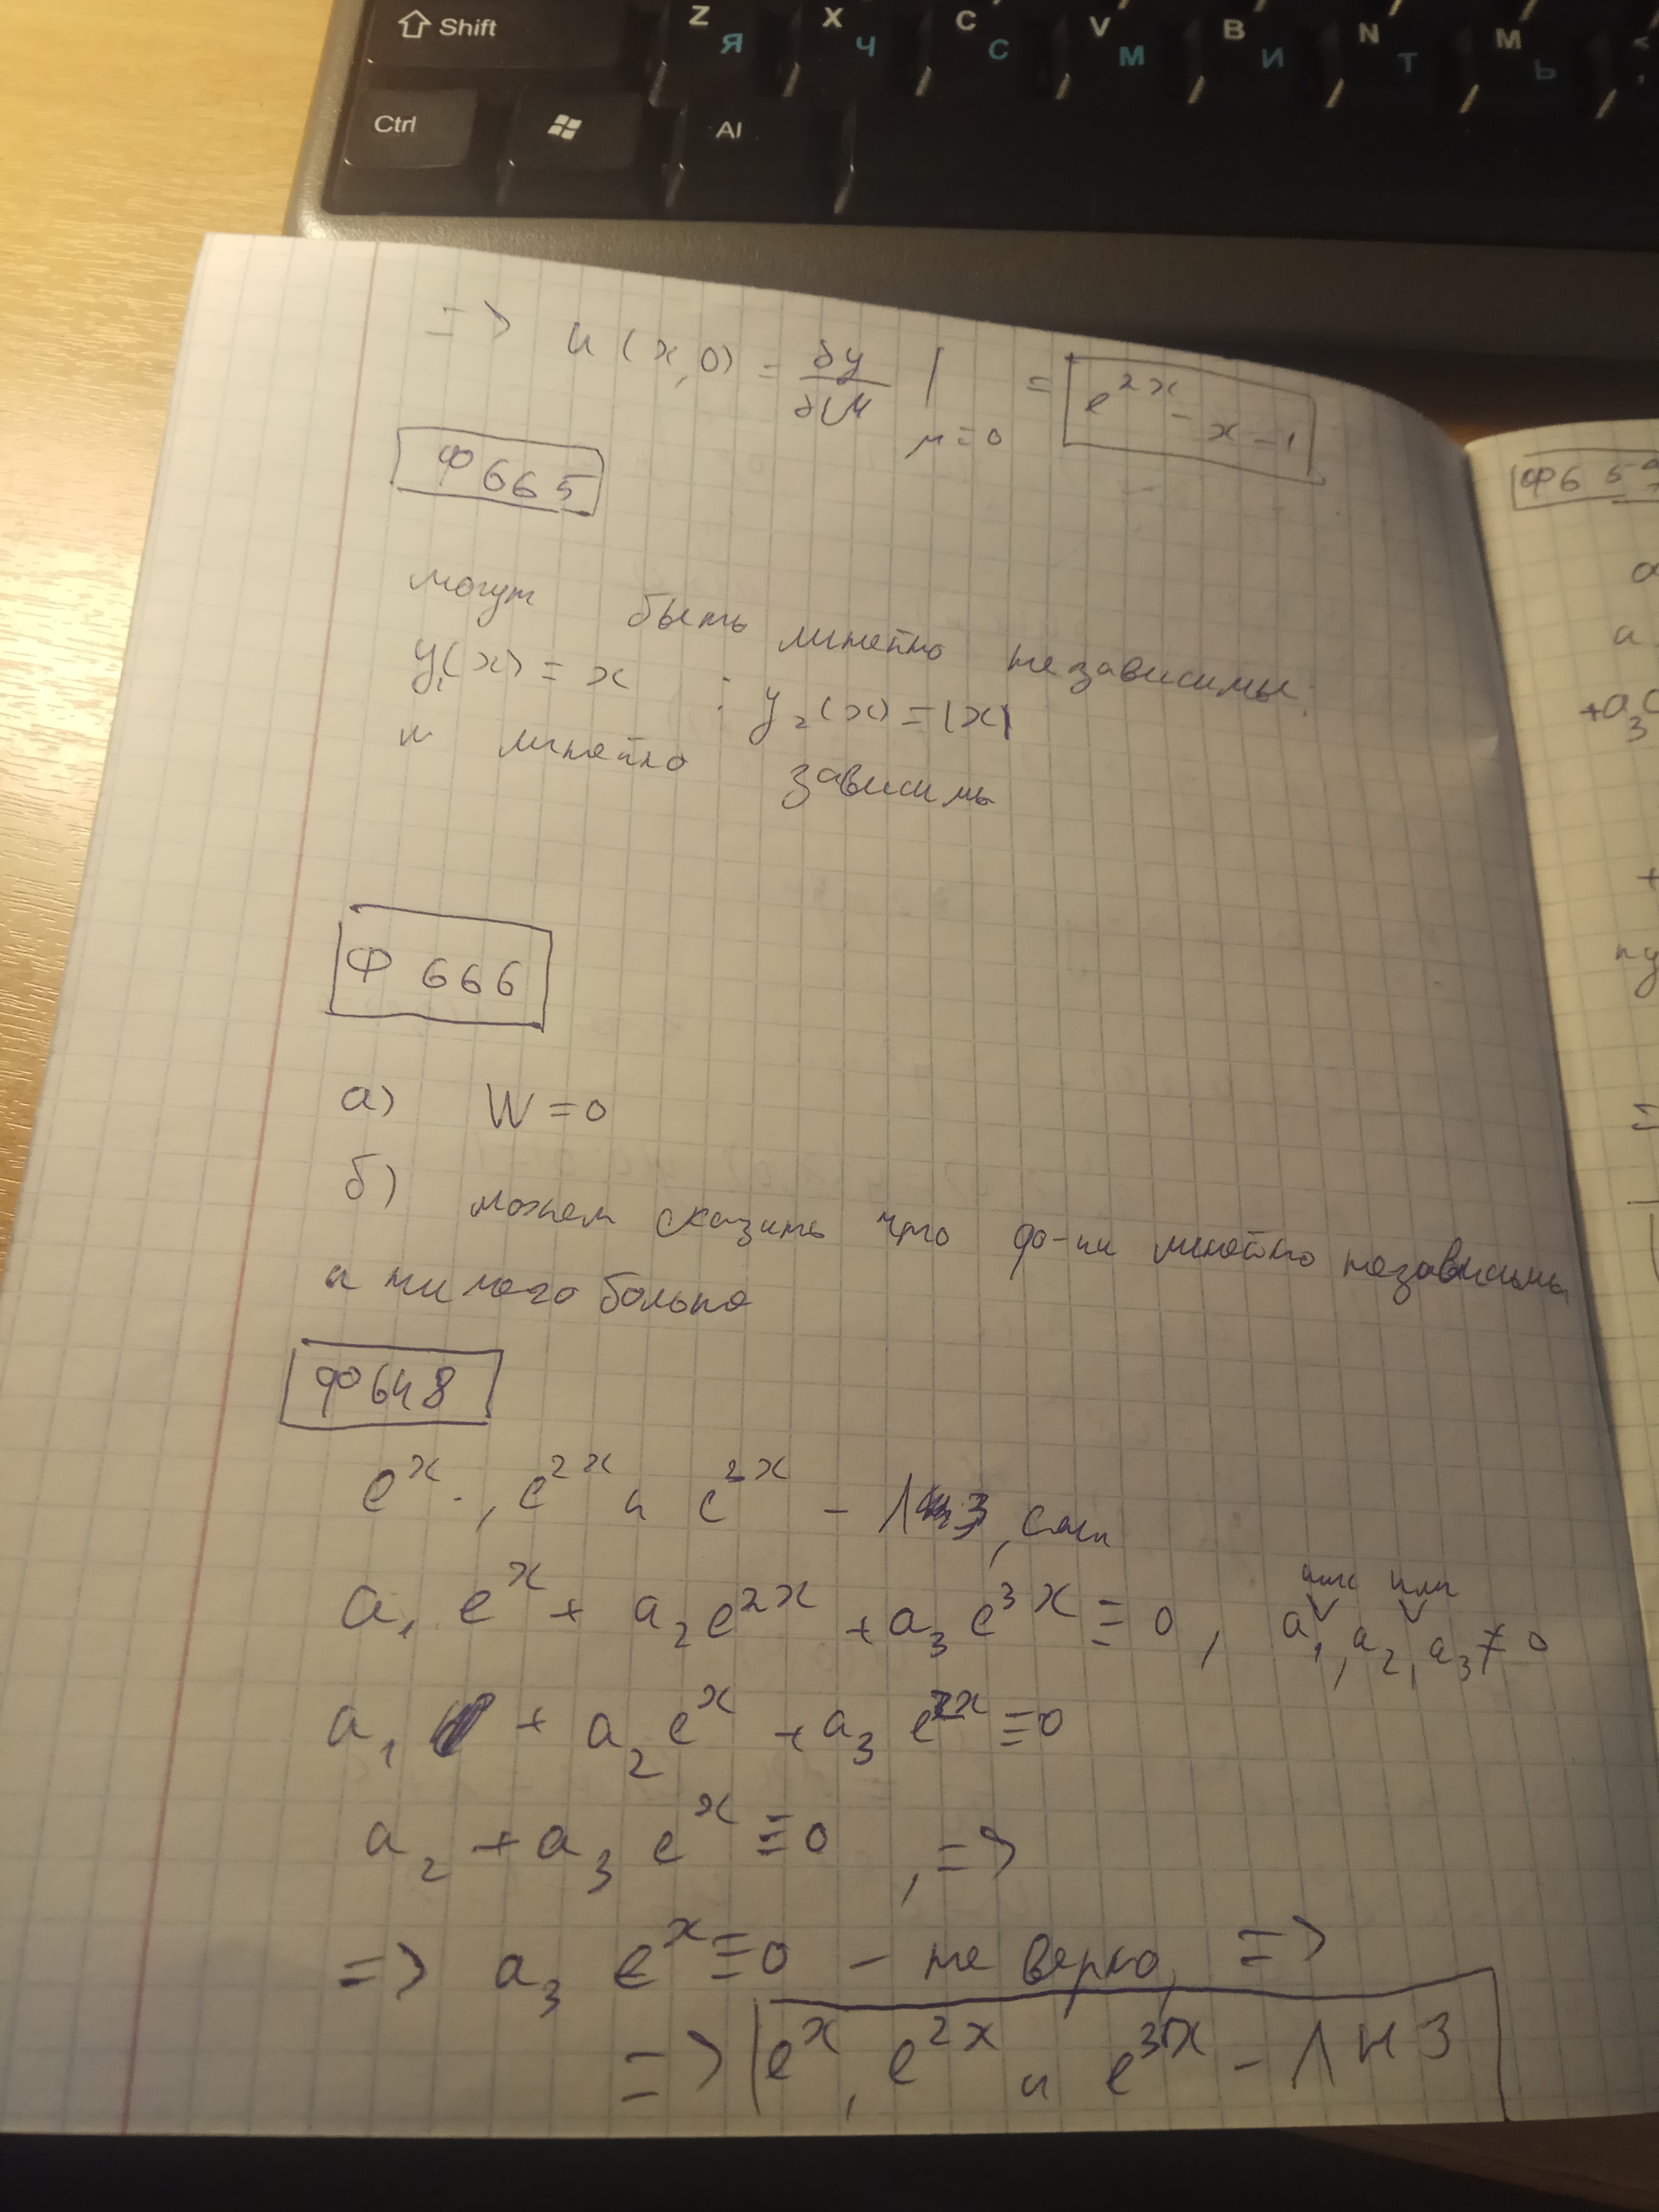 Shift Z Я X Ч C С V М B И N Т M Ь
Ctrl Al
=> u(x,0) = ∂y/∂μ | μ=0 = e^{2x} - x - 1
Ф 665
могут быть линейно независимы:
y₁(x) = x ; y₂(x) = |x|
и линейно зависимы
Ф 666
а) W = 0
б) можем сказать что ф-ии линейно независимы
и ничего больше
Ф 648
e^x, e^{2x} и e^{3x} - ЛНЗ, если
или или
a₁ e^x + a₂ e^{2x} + a₃ e^{3x} ≡ 0, a₁, a₂, a₃ ≠ 0
a₁ + a₂ e^x + a₃ e^{2x} ≡ 0
a₂ + a₃ e^x ≡ 0, =>
=> a₃ e^x ≡ 0 - не верно, =>
=> e^x, e^{2x} и e^{3x} - ЛНЗ
Ф 659
a
+a₃
+